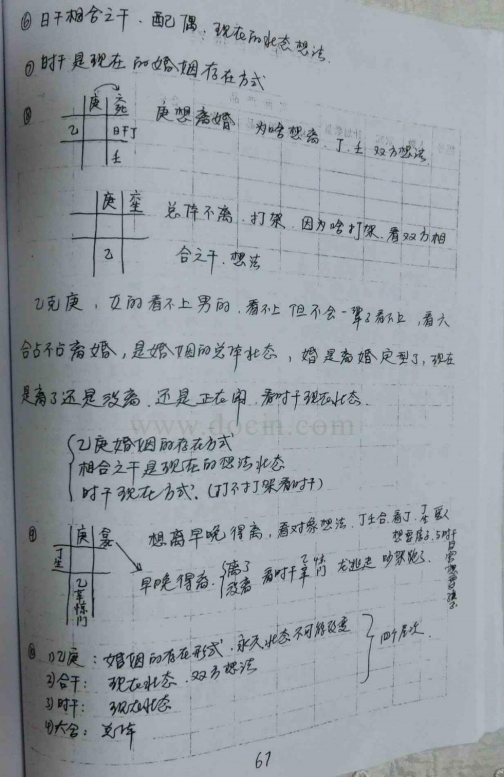 ⑥ 日干相合之干．配偶．现在的状态想法．
⑦ 时干是现在的婚姻存在方式
⑧
庚
乙 日干丁
土
庚想离婚 为啥想离．丁．土 双方想法
庚 室
乙
总体不离．打架．因为啥打架．看双方相
合之干．想法
乙克庚，女的看不上男的．看不上 但不会一辈子看不上，看六
合占不占离婚，是婚姻的总体状态，婚是离婚定型了，现在
是离了还是没离．还是正在闹．看时干现在状态．
www.docin.com
乙庚婚姻的存在方式
相合之干是现在的想法状态
时干现在方式．（打不打架看时干）
⑨
庚
丁
乙
惊
门
想离早晚得离，看对象想法．丁土合．看丁．
早晚得离．
离了
没离
看时干 龙逃走 吵架
⑩ 1)乙庚：婚姻的存在形式．永久状态不可能改变
2)合干：现在状态．双方想法
3)时干：现在状态
4)六合：总体
四个层次
67